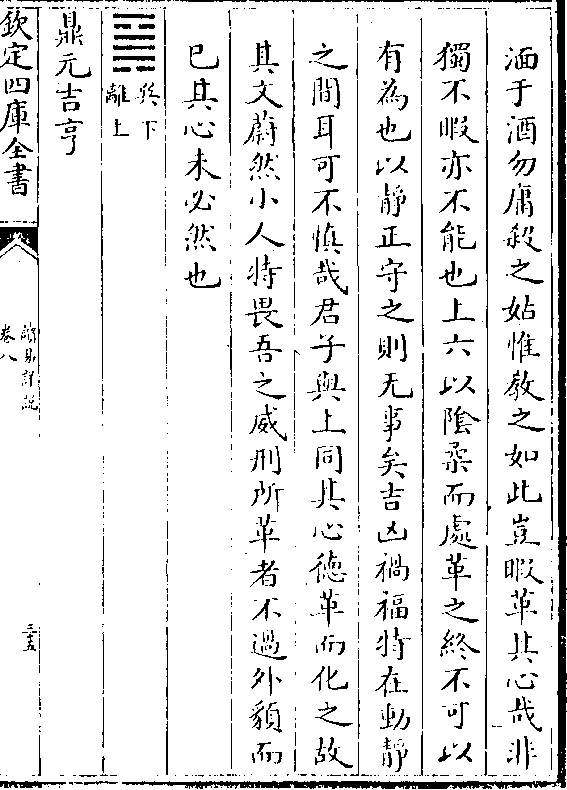 湎于酒勿庸殺之姑惟教之如此豈暇革其心哉非
獨不暇亦不能也上六以陰柔而處革之終不可以
有為也以靜正守之則无事矣吉凶禍福特在動靜
之間耳可不慎哉君子與上同其心德革而化之故
其文蔚然小人特畏吾之威刑所革者不過外貌而
已其心未必然也
䷱巽下離上
鼎元吉亨
欽定四庫全書
讀易詳說
卷八
三五